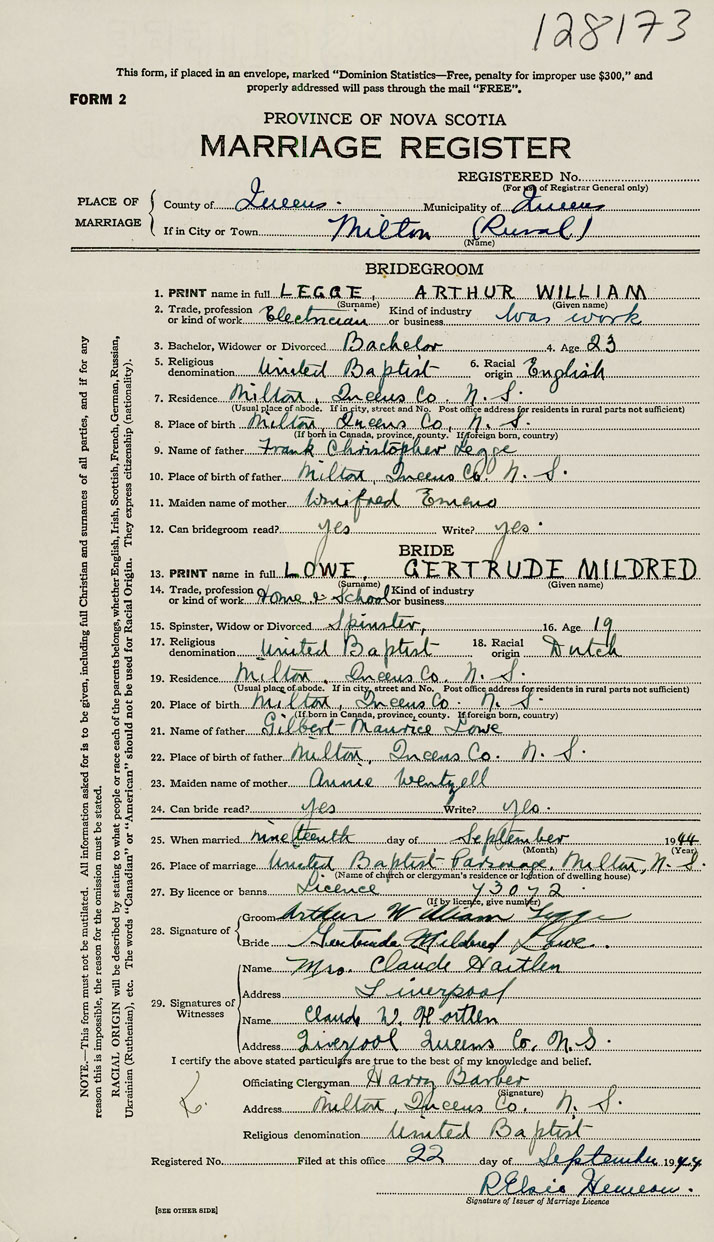 128173
This form, if placed in an envelope, marked "Dominion Statistics—Free, penalty for improper use $300," and
properly addressed will pass through the mail "FREE".
FORM 2
PROVINCE OF NOVA SCOTIA
MARRIAGE REGISTER
REGISTERED No.
(For use of Registrar General only)
PLACE OF MARRIAGE
County of Queens. Municipality of Queens
If in City or Town Milton (Rural)
(Name)
BRIDEGROOM
1. PRINT name in full LEGGE, ARTHUR WILLIAM
(Surname) (Given name)
2. Trade, profession or kind of work Electrician Kind of industry or business War work
3. Bachelor, Widower or Divorced Bachelor 4. Age 23
5. Religious denomination United Baptist 6. Racial origin English
7. Residence Milton, Queens Co. N. S.
(Usual place of abode. If in city, street and No. Post office address for residents in rural parts not sufficient)
8. Place of birth Milton, Queens Co, N. S.
(If born in Canada, province, county. If foreign born, country)
9. Name of father Frank Christopher Legge
10. Place of birth of father Milton, Queens Co. N. S.
11. Maiden name of mother Winifred Emeno
12. Can bridegroom read? yes Write? yes.
BRIDE
13. PRINT name in full LOWE, GERTRUDE MILDRED
(Surname) (Given name)
14. Trade, profession or kind of work Home & School Kind of industry or business
15. Spinster, Widow or Divorced Spinster, 16. Age 19
17. Religious denomination United Baptist 18. Racial origin Dutch
19. Residence Milton, Queens Co. N. S.
(Usual place of abode. If in city, street and No. Post office address for residents in rural parts not sufficient)
20. Place of birth Milton, Queens Co. N. S.
(If born in Canada, province, county. If foreign born, country)
21. Name of father Gilbert Maurice Lowe
22. Place of birth of father Milton, Queens Co. N. S.
23. Maiden name of mother Annie Wentzell
24. Can bride read? yes Write? yes.
25. When married nineteenth day of September 1944
(Month) (Year)
26. Place of marriage United Baptist Parsonage, Milton, N. S.
(Name of church or clergyman's residence or location of dwelling house)
27. By licence or banns Licence 73072
(If by licence, give number)
28. Signature of
Groom Arthur William Legge
Bride Gertrude Mildred Lowe.
29. Signatures of Witnesses
Name Mrs. Claude Hartlen
Address Liverpool
Name Claude W. Hartlen
Address Liverpool Queens Co. N.S.
I certify the above stated particulars are true to the best of my knowledge and belief.
Officiating Clergyman Harry Barber
(Signature)
Address Milton, Queens Co. N. S.
Religious denomination United Baptist
Registered No. Filed at this office 22 day of September 1944
Signature of Issuer of Marriage Licence
[SEE OTHER SIDE]
NOTE.—This form must not be mutilated. All information asked for is to be given, including full Christian and surnames of all parties, and if for any
reason this is impossible, the reason for the omission must be stated.
RACIAL ORIGIN will be described by stating to what people or race each of the parents belongs, whether English, Irish, Scottish, French, German, Russian,
Ukrainian (Ruthenian), etc. The words "Canadian" or "American" should not be used for Racial Origin. They express citizenship (nationality).